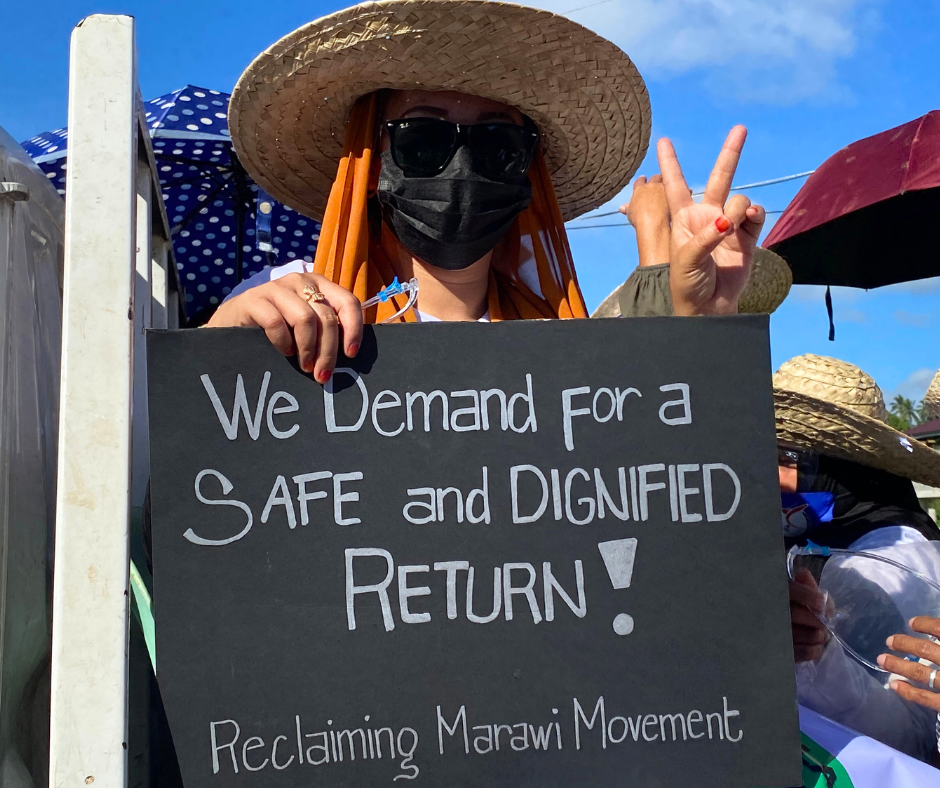 We Demand For a
SAFE and DIGNIFIED
RETURN!
Reclaiming Marawi Movement